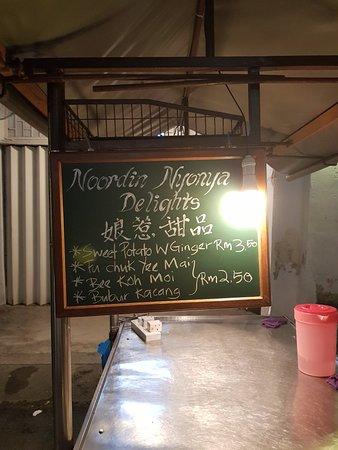 Noordin Nyonya
Delights
娘惹甜品
* Sweet Potato W Ginger RM 3.50
* Fu Chuk Yee Mai
* Bee Koh Moi RM 2.50
* Bubur Kacang